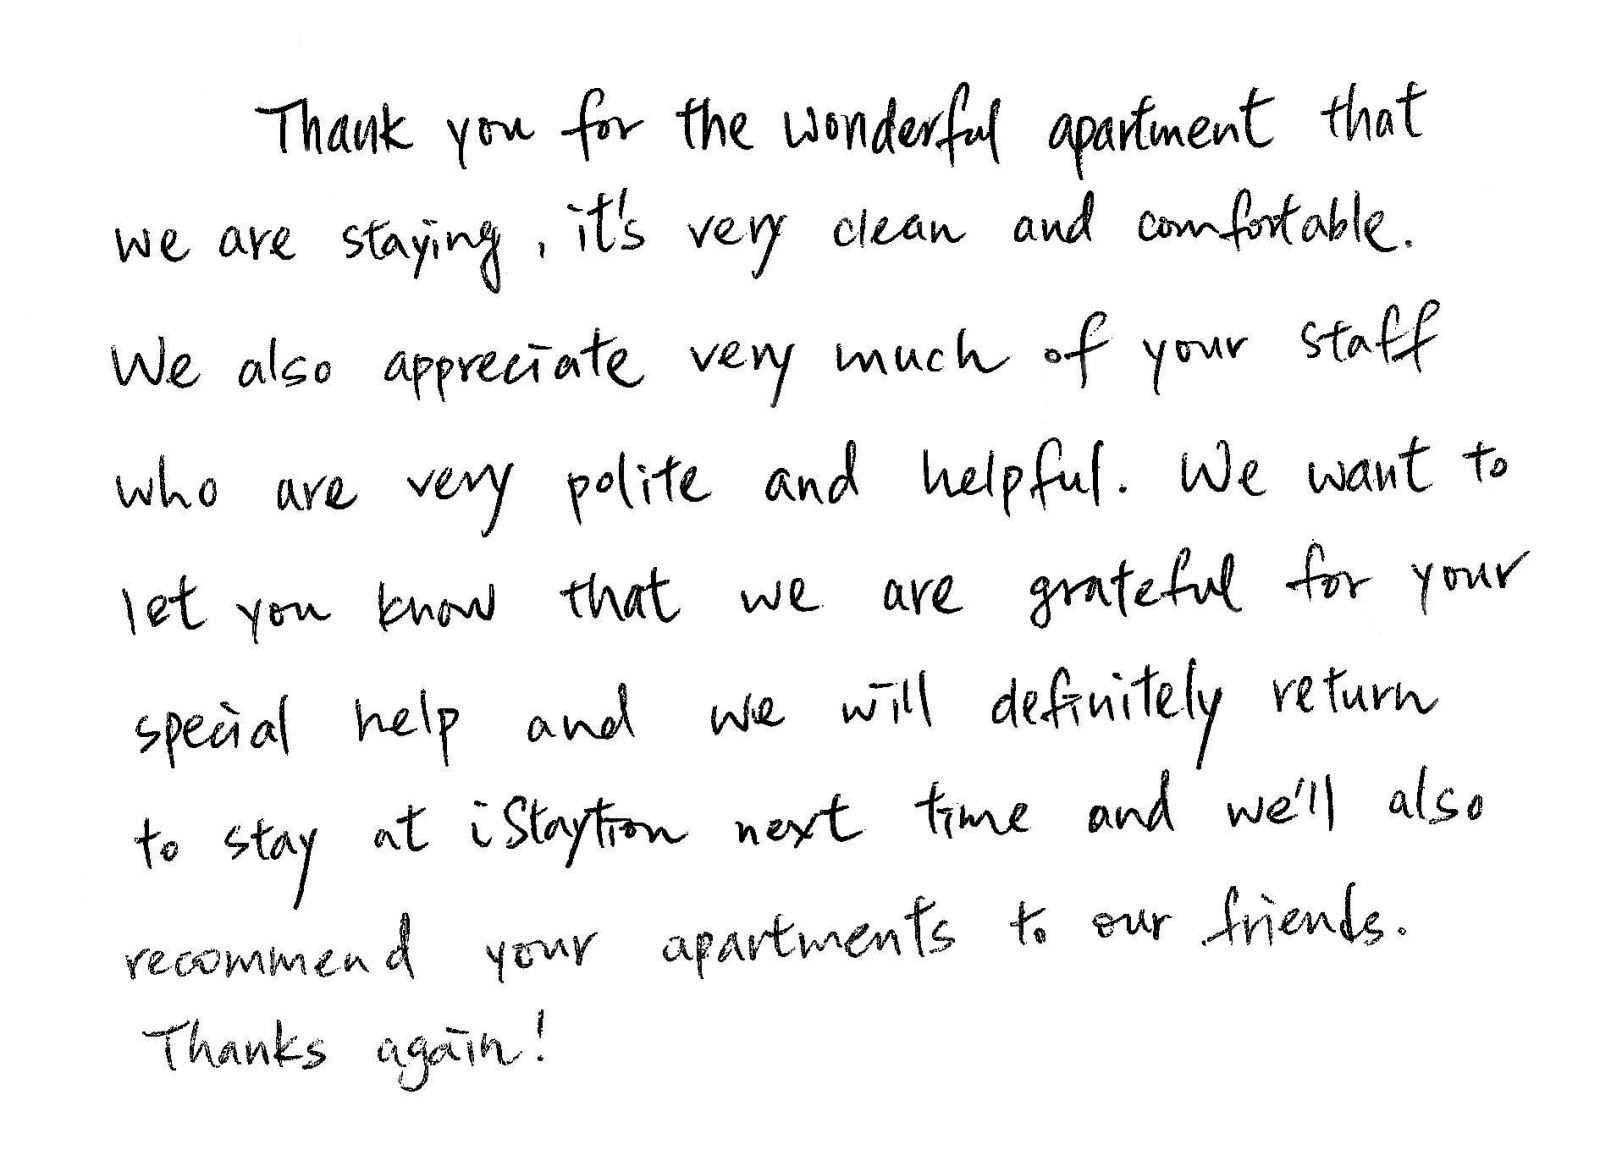 Thank you for the wonderful apartment that
we are staying, it's very clean and comfortable.
We also appreciate very much of your staff
who are very polite and helpful. We want to
let you know that we are grateful for your
special help and we will definitely return
to stay at iStaytion next time and we'll also
recommend your apartments to our friends.
Thanks again!